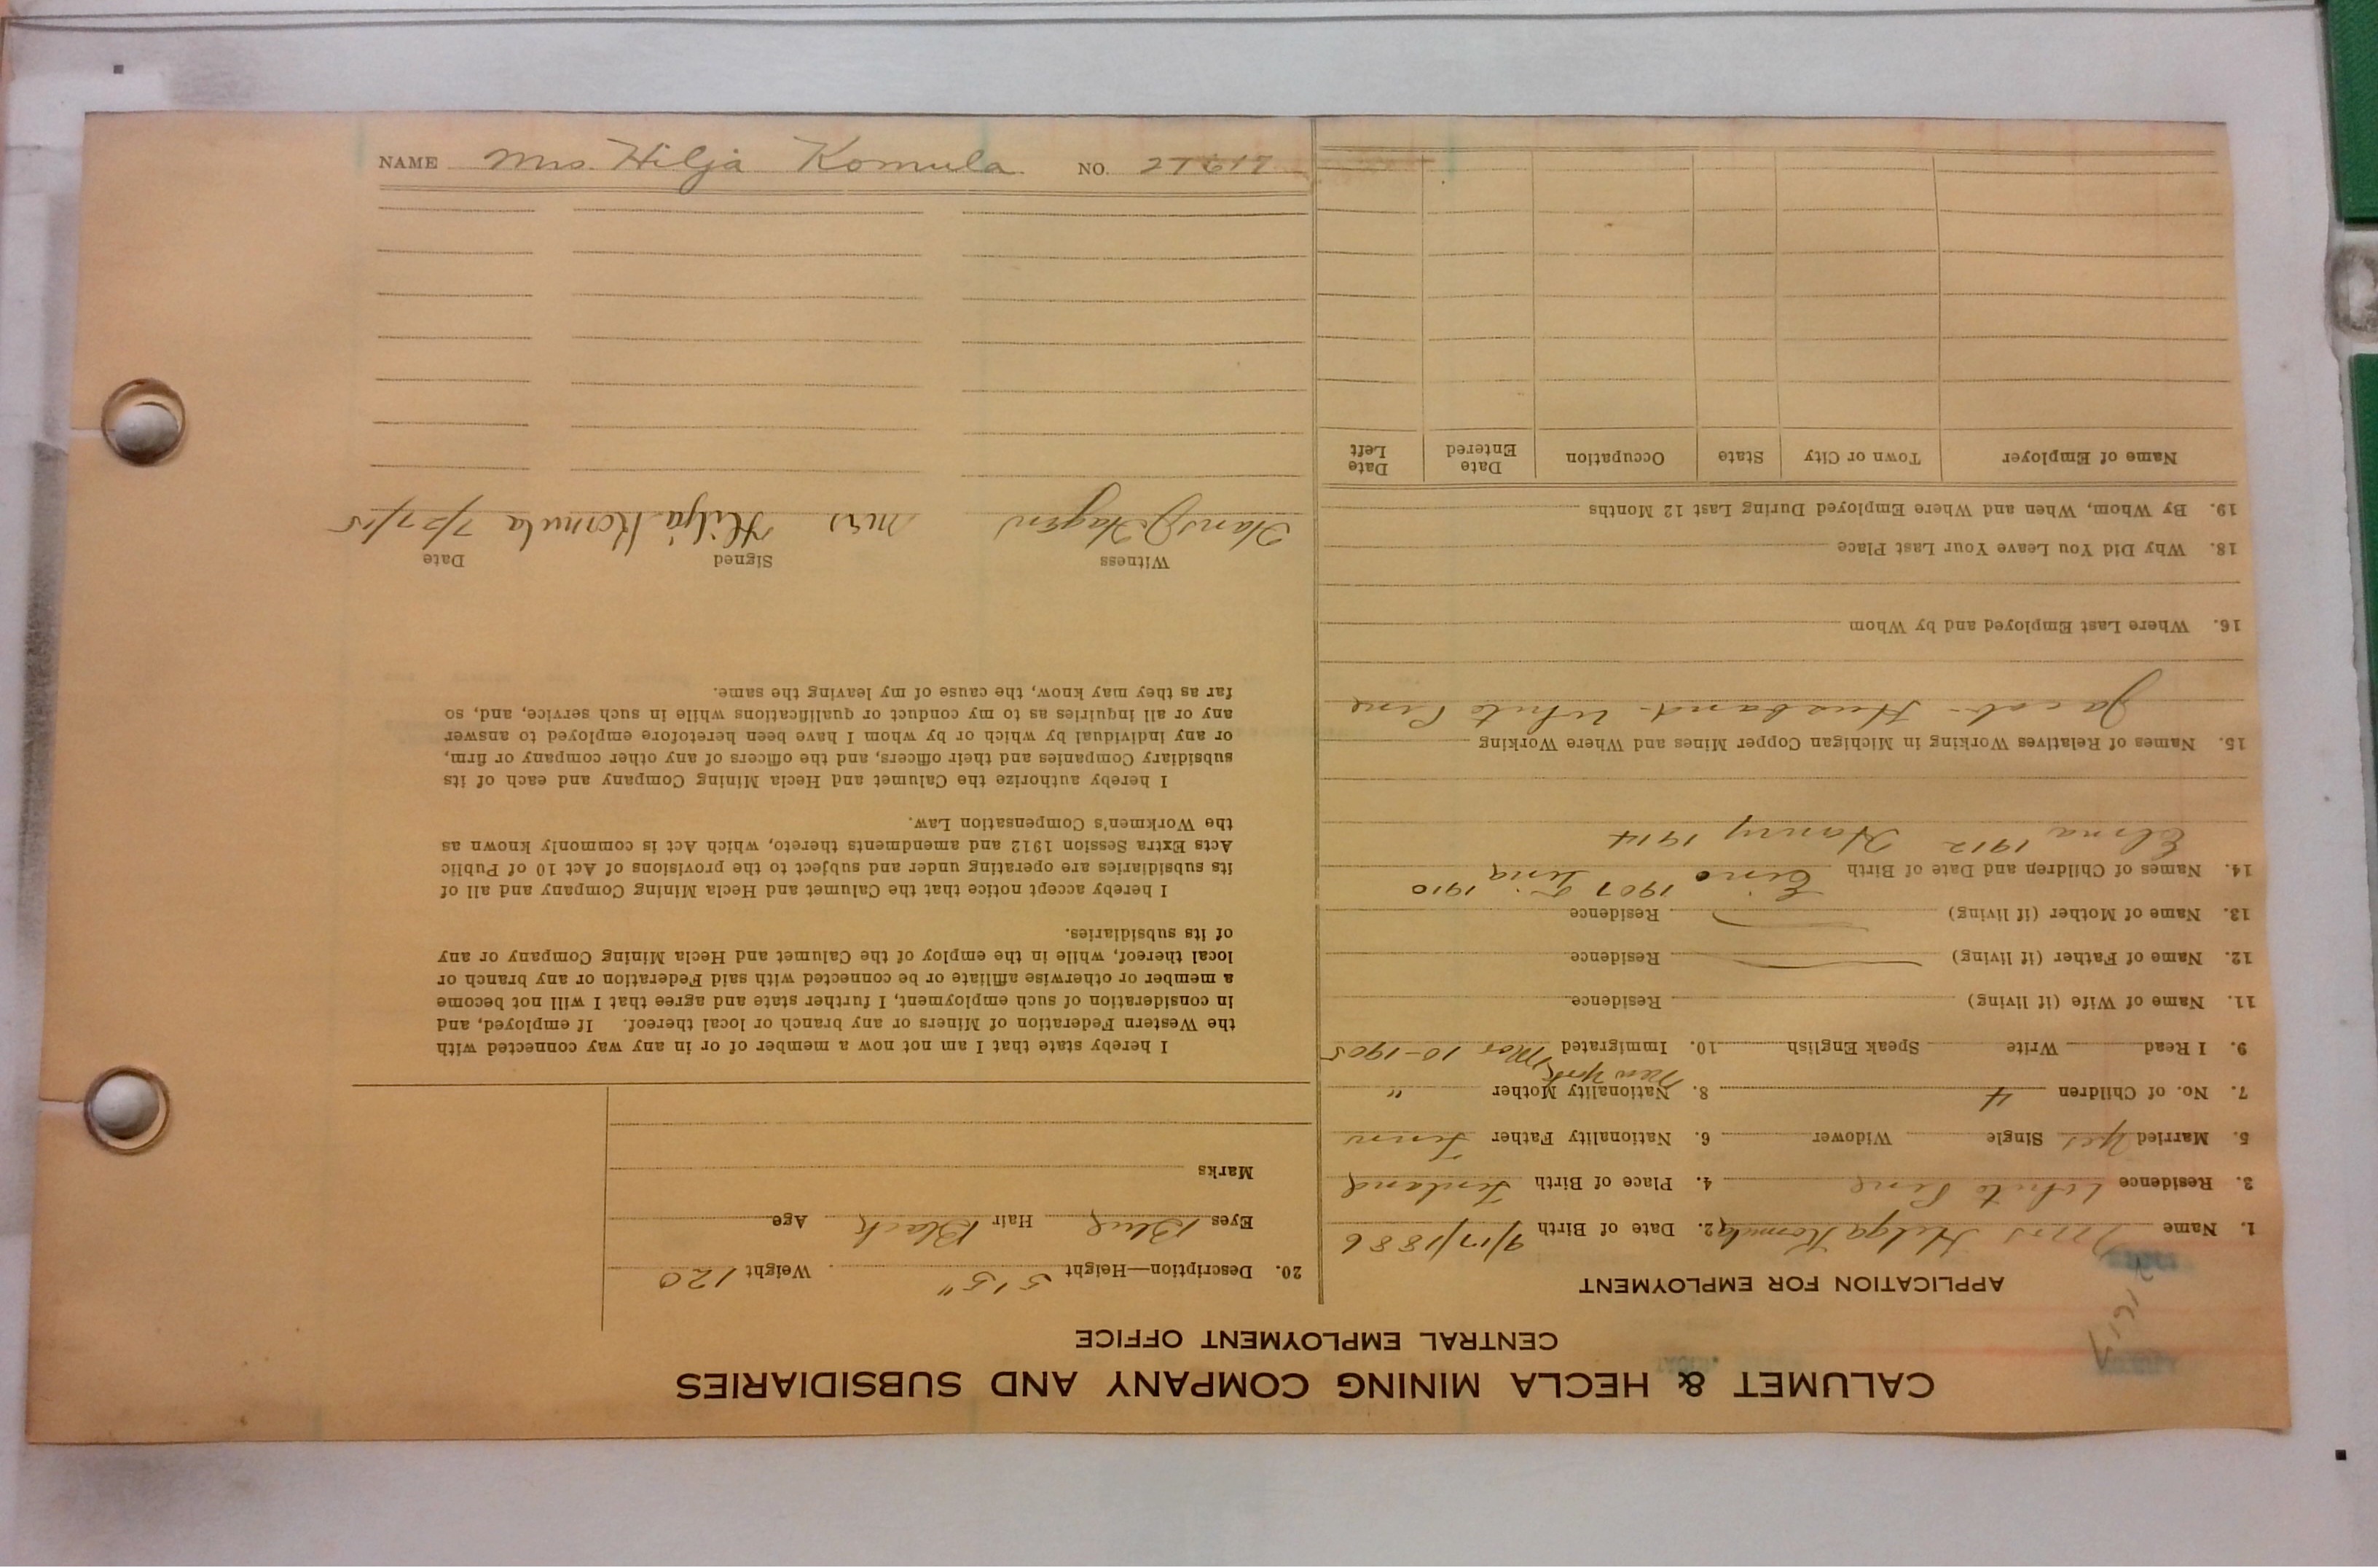 CALUMET & HECLA MINING COMPANY AND SUBSIDIARIES
CENTRAL EMPLOYMENT OFFICE
APPLICATION FOR EMPLOYMENT
1. Name Mrs Hilga Komula 2. Date of Birth 9/17/1886
3. Residence White Pine 4. Place of Birth Finland
5. Married Yes Single Widower 6. Nationality Father Finn
7. No. of Children 4 8. Nationality Mother "
New York
9. I Read Write Speak English 10. Immigrated Mar 10-1905
11. Name of Wife (if living) Residence
12. Name of Father (if living) Residence
13. Name of Mother (if living) Residence
14. Names of Children and Date of Birth Eino 1907 Lina 1910
1912 1914
15. Names of Relatives Working in Michigan Copper Mines and Where Working
Jacob - Husband - White Pine
16. Where Last Employed and by Whom
18. Why Did You Leave Your Last Place
19. By Whom, When and Where Employed During Last 12 Months
Name of Employer Town or City State Occupation Date Entered Date Left
20. Description—Height 5'5" Weight 120
Eyes Blue Hair Black Age
Marks
I hereby state that I am not now a member of or in any way connected with
the Western Federation of Miners or any branch or local thereof. If employed, and
in consideration of such employment, I further state and agree that I will not become
a member or otherwise affiliate or be connected with said Federation or any branch or
local thereof, while in the employ of the Calumet and Hecla Mining Company or any
of its subsidiaries.
I hereby accept notice that the Calumet and Hecla Mining Company and all of
its subsidiaries are operating under and subject to the provisions of Act 10 of Public
Acts Extra Session 1912 and amendments thereto, which Act is commonly known as
the Workmen's Compensation Law.
I hereby authorize the Calumet and Hecla Mining Company and each of its
subsidiary Companies and their officers, and the officers of any other company or firm,
or any individual by which or by whom I have been heretofore employed to answer
any or all inquiries as to my conduct or qualifications while in such service, and, so
far as they may know, the cause of my leaving the same.
Witness Signed Date
Hans J Hagen Mrs Hilja Komula 7/27/15
NAME Mrs. Hilja Komula NO. 27617